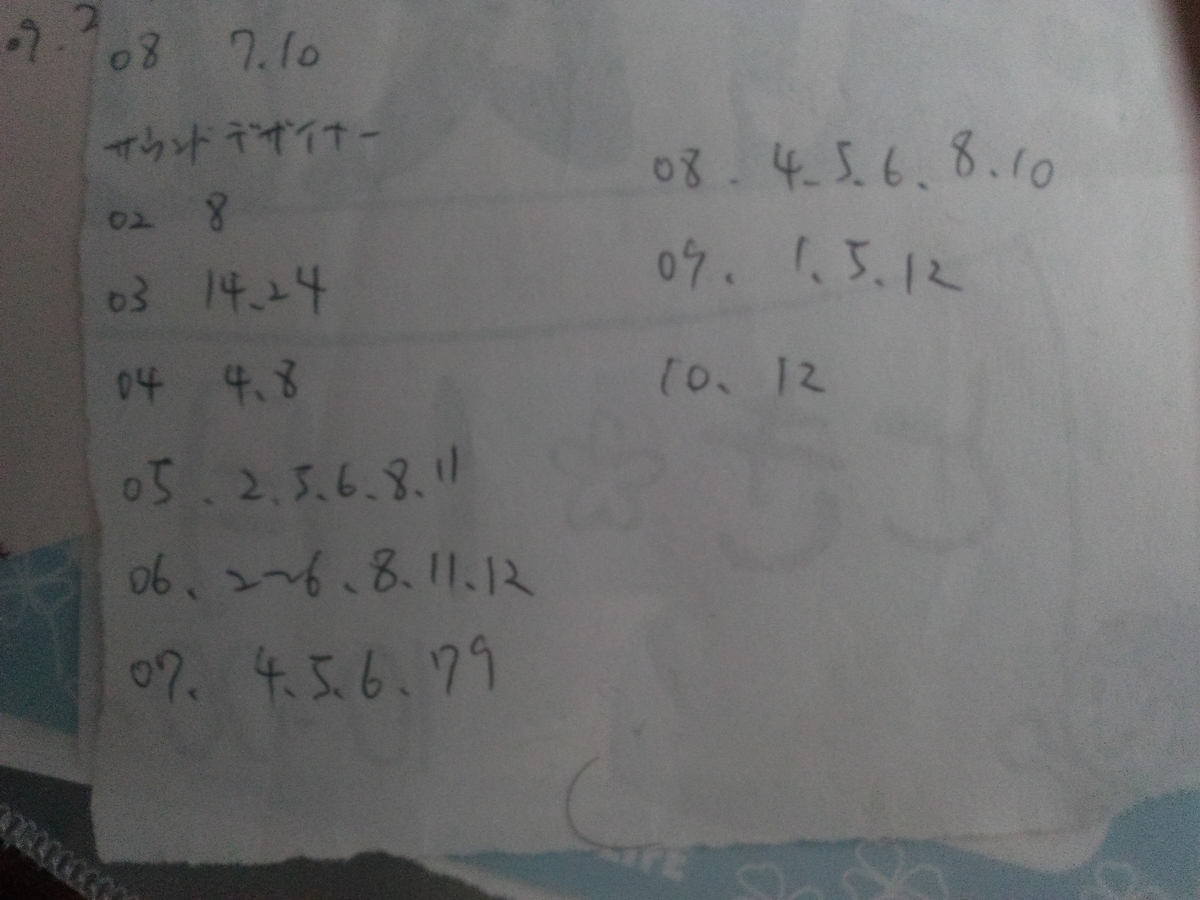 09.2
08 7.10
サウンドデザイナー
02 8
03 14、24
04 4、8
05、2、5、6、8、11
06、2~6、8、11、12
07、4、5、6、79
08、4、5、6、8、10
09、1、5、12
10、12
LIFE